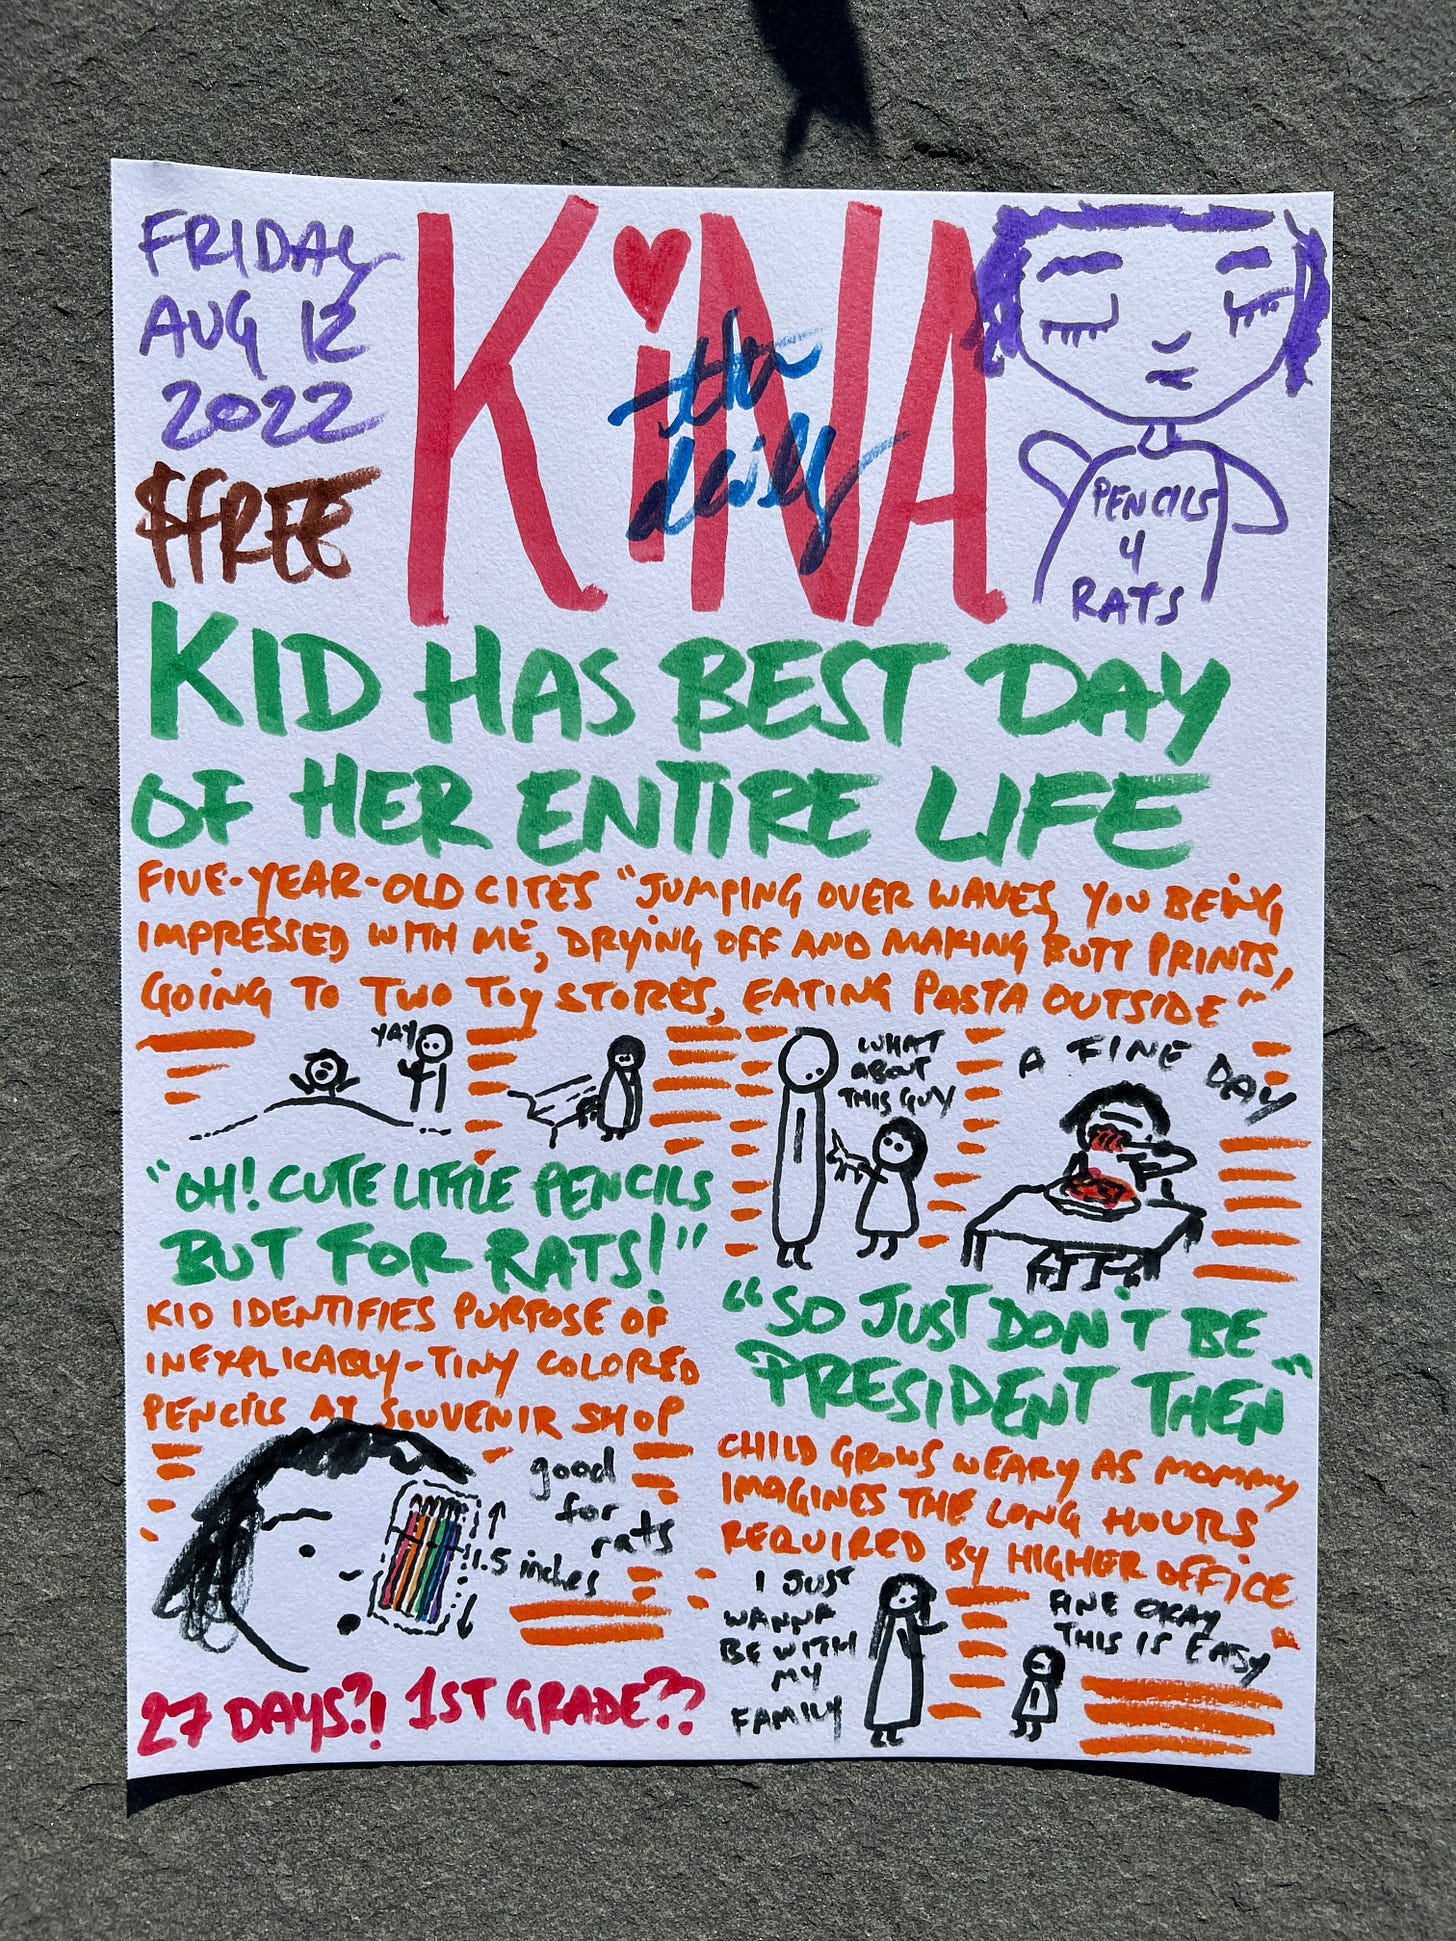 FRIDAY
AUG 12
2022
$FREE
KiNA
the
daily
PENCILS
4
RATS
KID HAS BEST DAY
OF HER ENTIRE LIFE
FIVE-YEAR-OLD CITES "JUMPING OVER WAVES, YOU BEING
IMPRESSED WITH ME, DRYING OFF AND MAKING BUTT PRINTS,
GOING TO TWO TOY STORES, EATING PASTA OUTSIDE"
YAY
WHAT
ABOUT
THIS GUY
A FINE DAY
"OH! CUTE LITTLE PENCILS
BUT FOR RATS!"
KID IDENTIFIES PURPOSE OF
INEXPLICABLY-TINY COLORED
PENCILS AT SOUVENIR SHOP
good
for
rats
1.5 inches
27 DAYS?! 1ST GRADE??
"SO JUST DON'T BE
PRESIDENT THEN"
CHILD GROWS WEARY AS MOMMY
IMAGINES THE LONG HOURS
REQUIRED BY HIGHER OFFICE
I JUST
WANNA
BE WITH
MY
FAMILY
FINE OKAY
THIS IS EASY